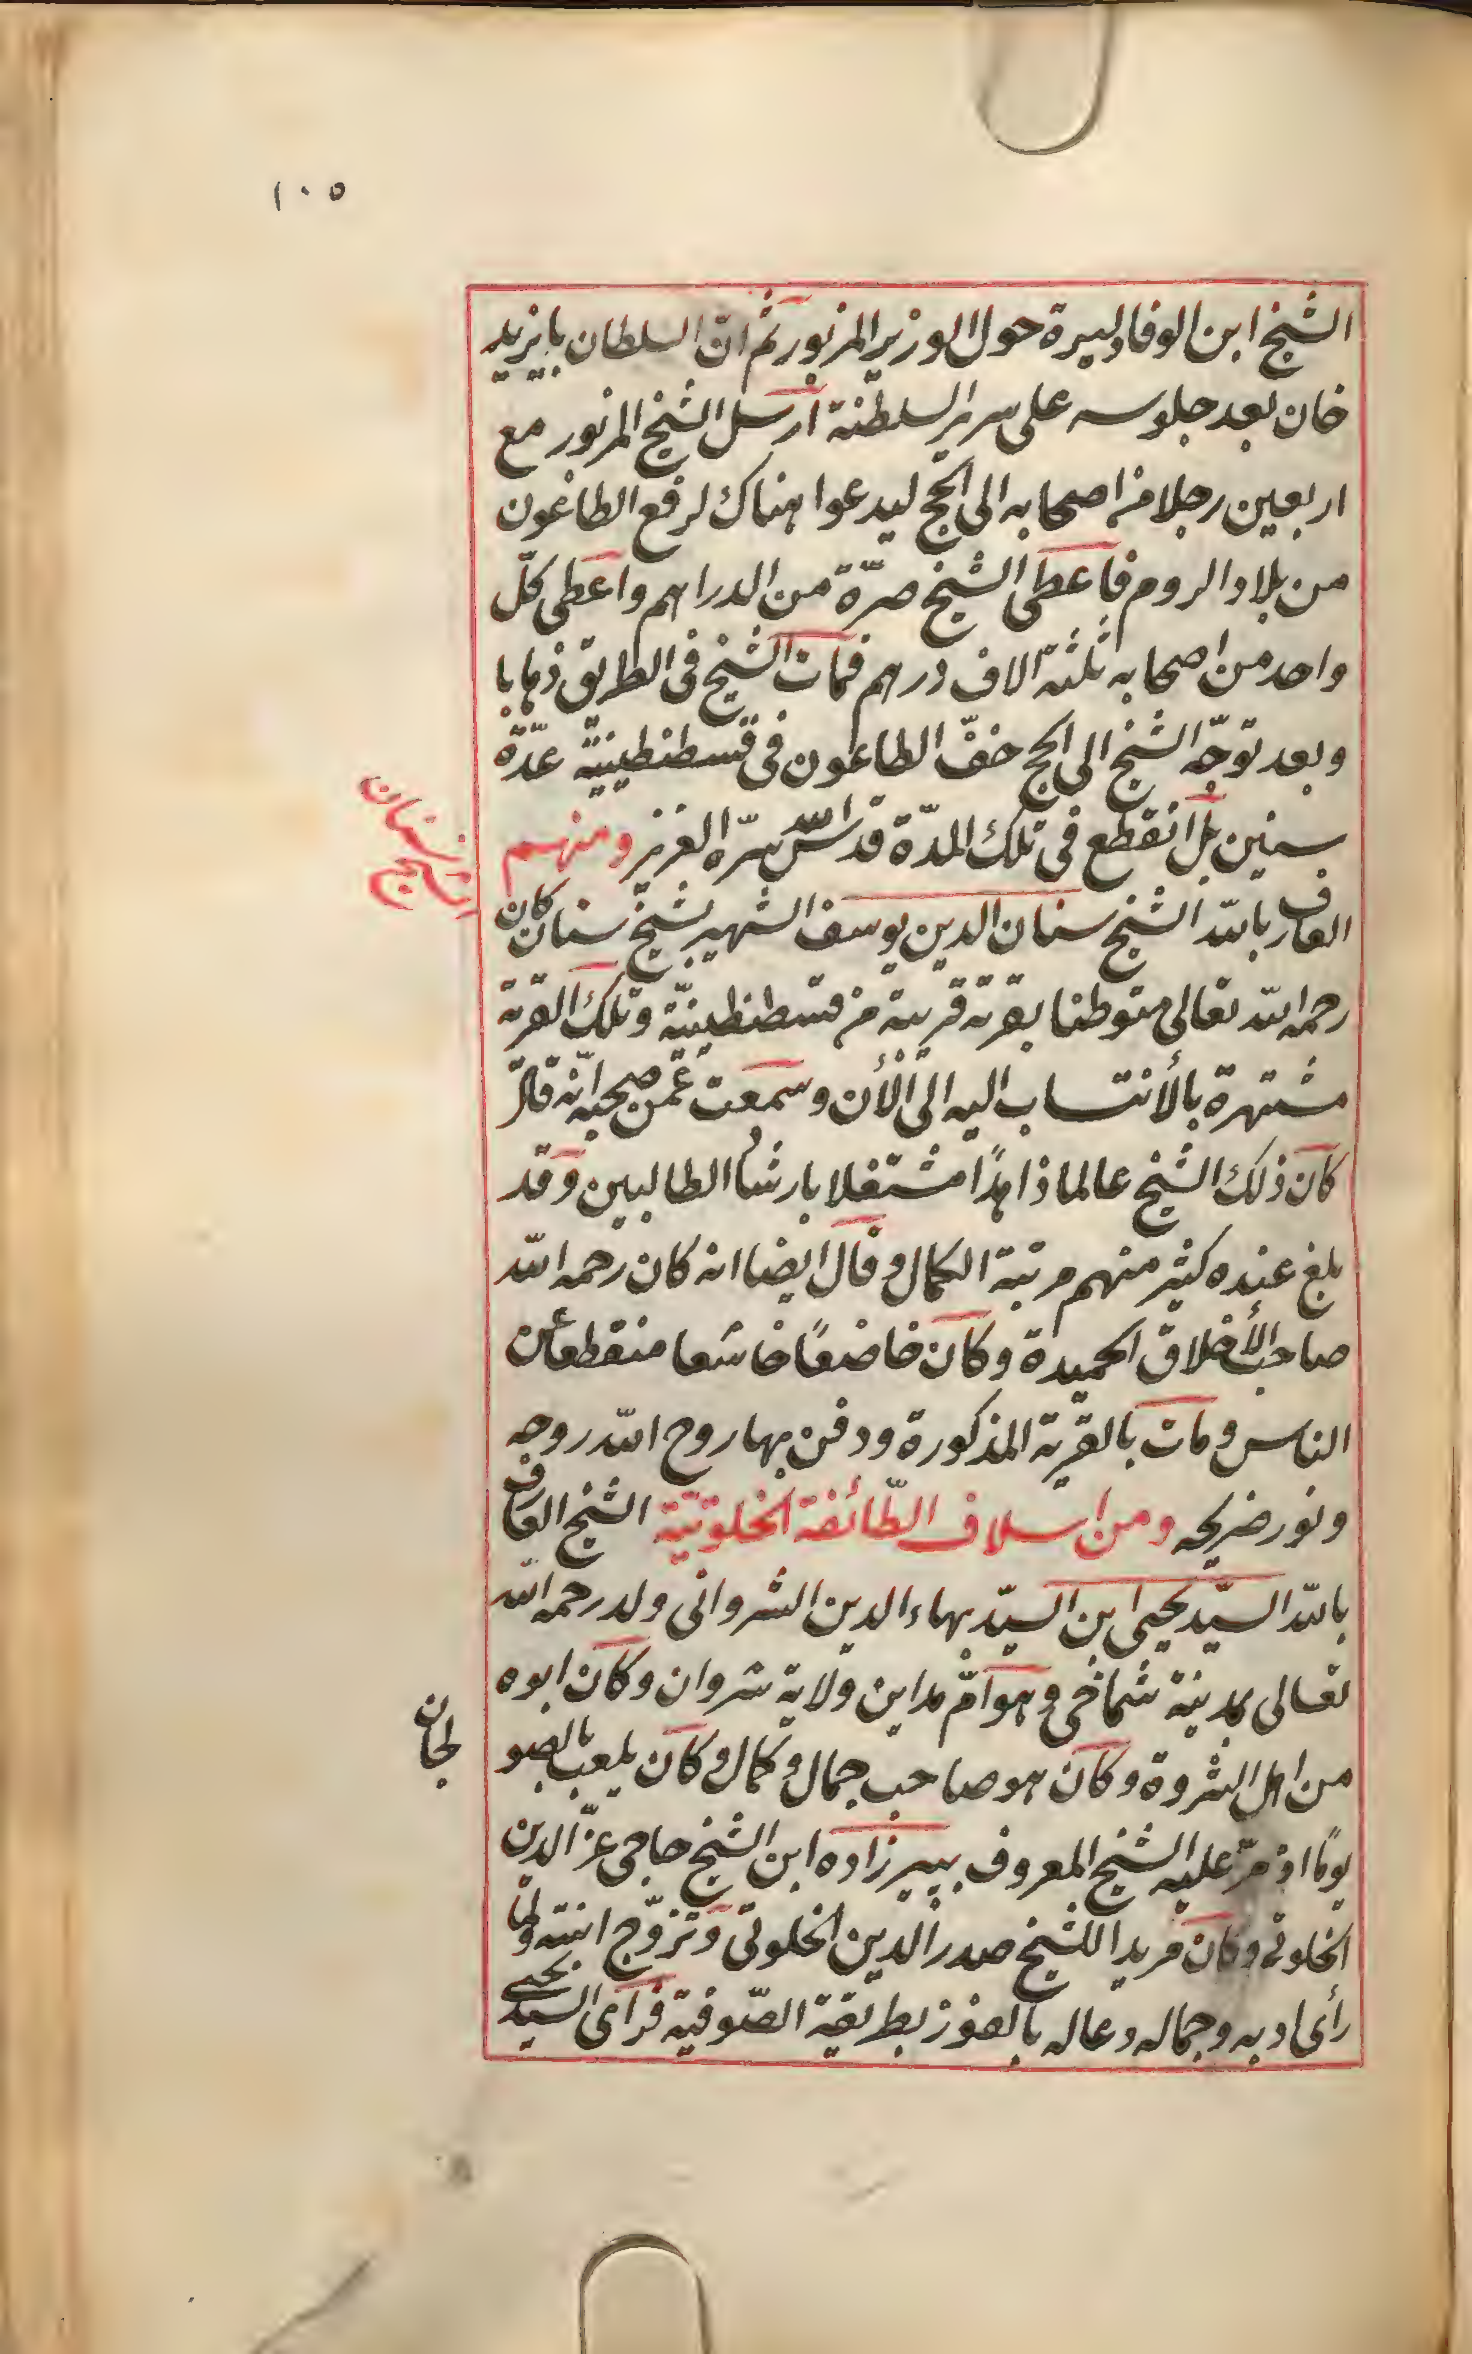 ١٠٥
الشيخ ابن الوفا دائرة حول الوزير المزبور ثم ان السلطان بايزيد
خان بعد جلوسه على سرير السلطنة ارسل الشيخ المزبور مع
اربعين رجلا من اصحابه الى الحج ليدعوا هناك لرفع الطاعون
من بلاد الروم فاعطى الشيخ صرّة من الدراهم واعطى كلّ
واحد من اصحابه ثلثة الاف درهم فمات الشيخ فى الطريق ذهابا
وبعد توجّه الشيخ الى الحج خفّ الطاعون فى قسطنطينيّة عدّة
سنين بل انقطع فى تلك المدّة قدّس الله سرّه العزيز ومنهم
الشيخ سنان
العارف بالله الشيخ سنان الدين يوسف الشهير بشيخ سنان كان
رحمه الله تعالى متوطنا بقرية قريبة من قسطنطينيّة وتلك القرية
مشتهرة بالأنتساب اليه الى الأن وسمعت عمّن صحبه انّه قال
كان ذلك الشيخ عالما زاهدًا مشتغلا بارشاد الطالبين وقد
بلغ عنده كثير منهم مرتبة الكمال وقال ايضا انه كان رحمه الله
صاحب الأخلاق الحميدة وكان خاضعًا خاشعا منقطعا عن
الناس ومات بالقرية المذكورة ودفن بها روح الله روحه
ونور ضريحه ومن اسلاف الطّائفة الخلوتيّة الشيخ العارف
بالله السيّد يحيى ابن السيّد بهاء الدين الشروانى ولد رحمه الله
تعالى بمدينة شماخى وهو امّ مداين ولاية شروان وكان ابوه
من اهل الثروة وكان هو صاحب جمال وكمال وكان يلعب بالصو
لجان
يومًا اذ مرّ عليه الشيخ المعروف بپيرزاده ابن الشيخ حاجى عزّ الدين
الخلوتى وكان مريدا للشيخ صدر الدين الخلوتى وتزوّج ابنته ولما
رأى ادبه وجماله دعا له بالفوز بطريقة الصّوفية فرأى السيد يحيى